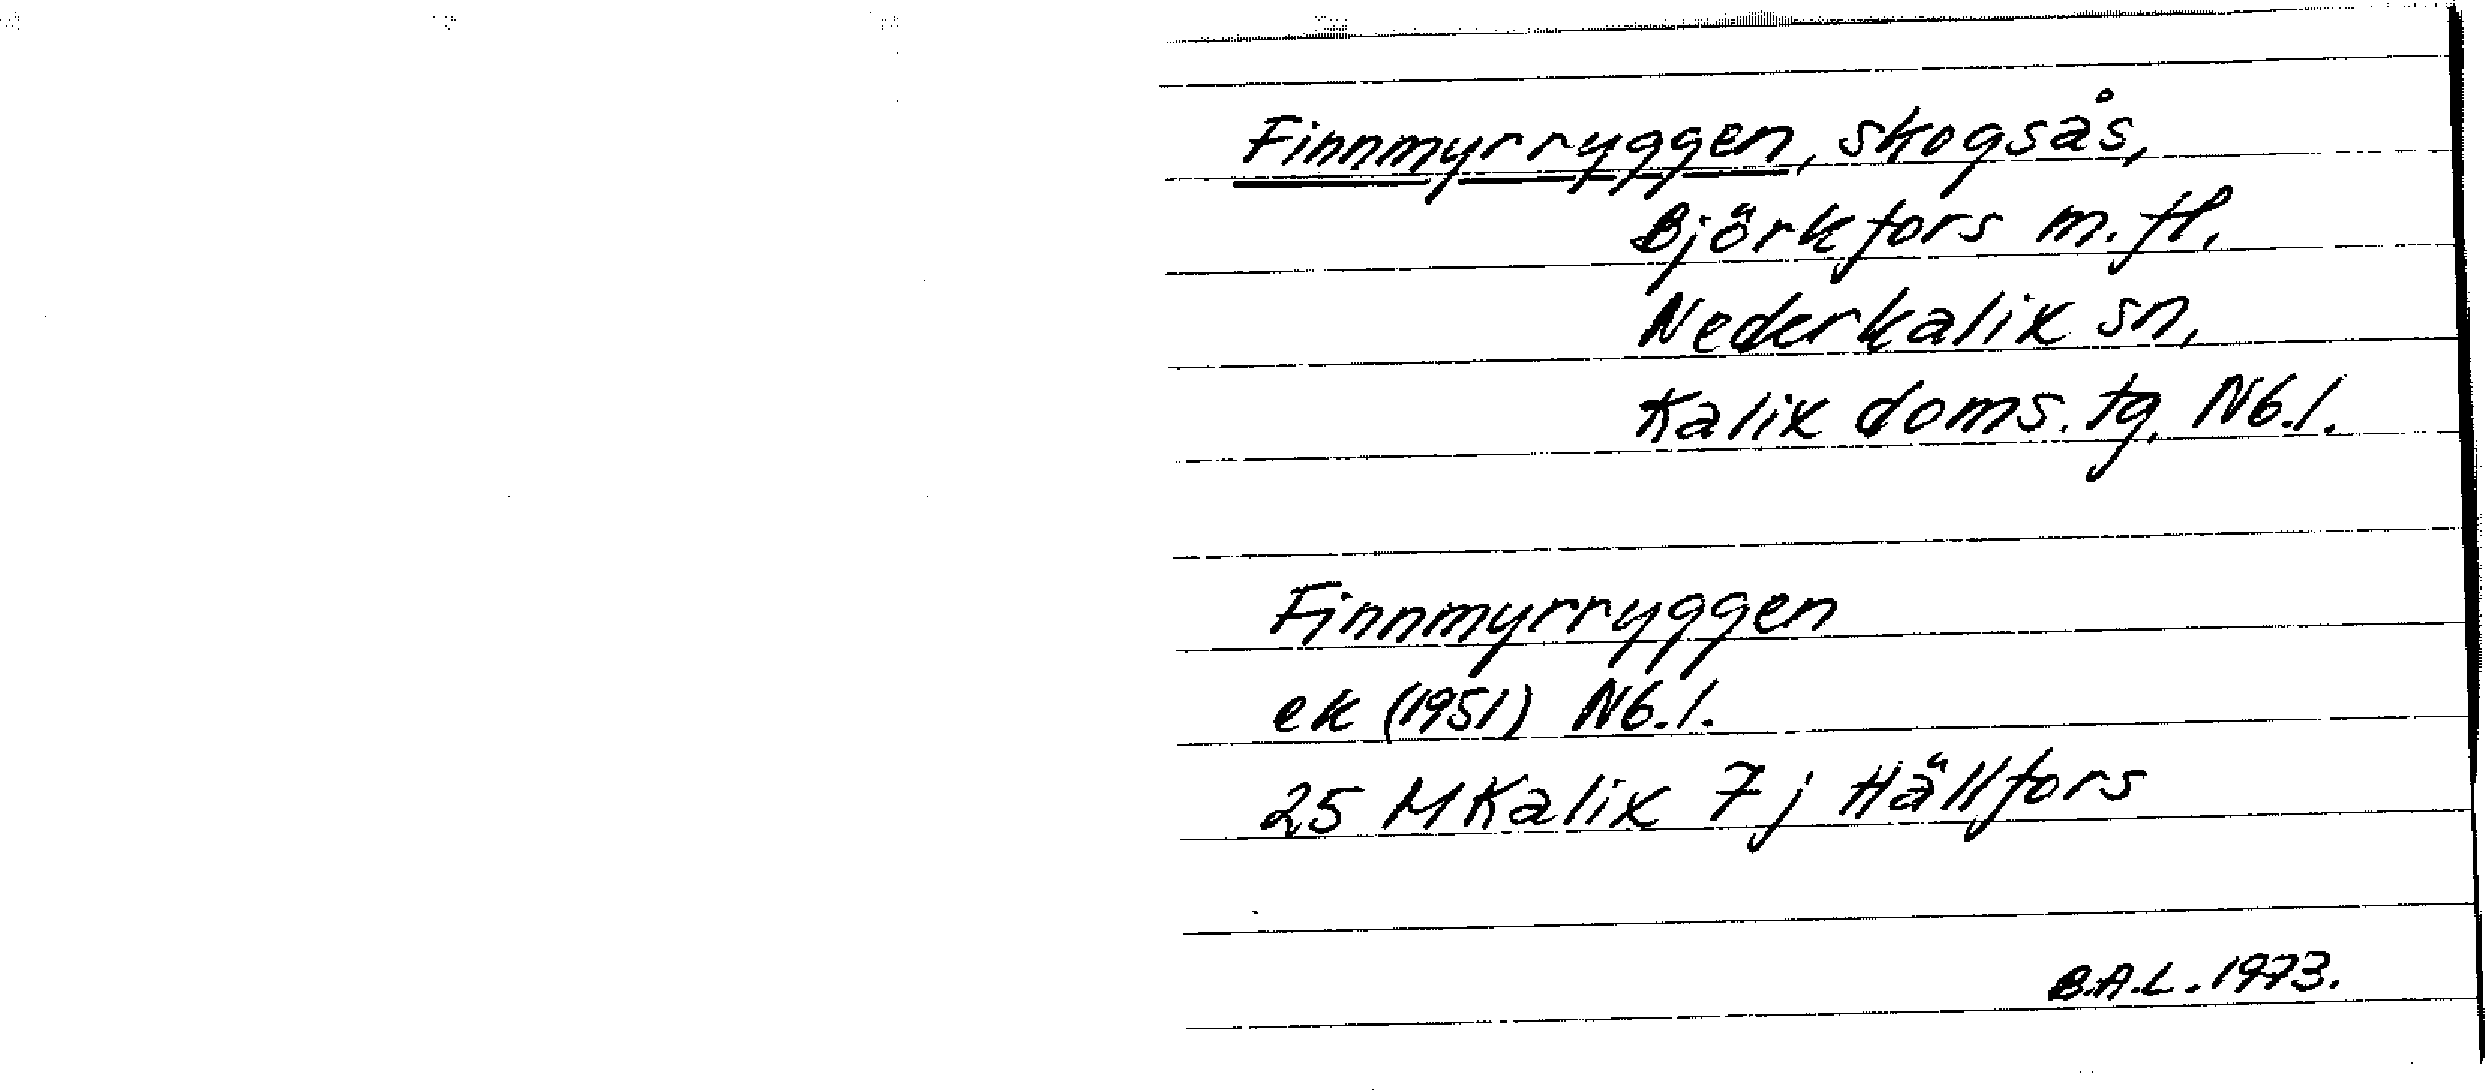 Finnmyrryggen, skogsås,
Björkfors m. fl.
Nederkalix sn,
Kalix doms. tg, Nb.l.
Finnmyrryggen
ek (1951) Nb.l.
25 M Kalix 7 j Hällfors
B.A.L. 1973.